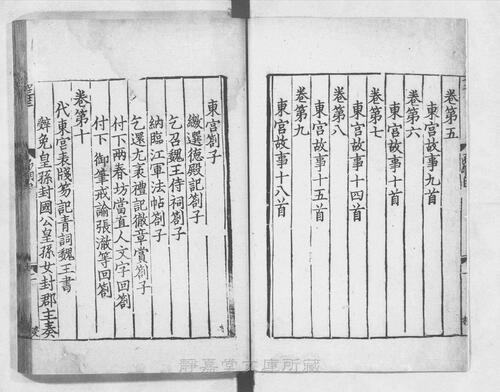 卷第五
東宮故事九首
卷第六
東宮故事十首
卷第七
東宮故事十四首
卷第八
東宮故事十五首
卷第九
東宮故事十八首
東宮劄子
繳選德殿記劄子
乞召魏王侍祠劄子
納臨江軍法帖劄子
乞還尤袤禮記徹章賞劄子
付下兩春坊當直人文字回劄
付下御筆戒諭張澈等回劄
卷第十
代東宮表牋笏記青詞魏王書
辭免皇孫封國公皇孫女封郡主奏
靜嘉堂文庫所藏